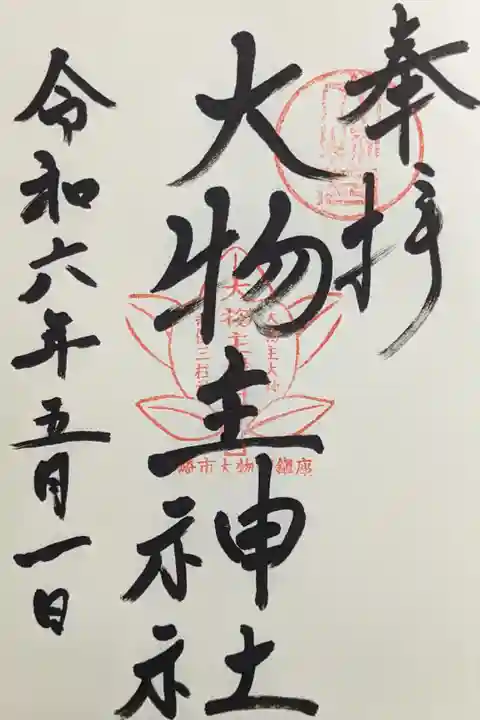 奉拝
大物主神社
令和六年五月一日
大物主大神
市大物
鎮座